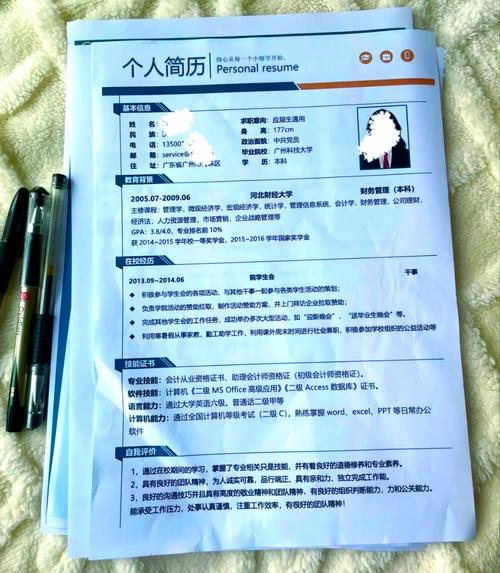 个人简历 细心从每一个小细节开始。
Personal resume
基本信息
姓 名： 求职意向：应届生通用
民 族： 身 高：177cm
电 话：13500 政治面貌：中共党员
邮 箱：service@ 毕业院校：广州科技大学
住 址：广东省广州 珠区 学 历：本科
教育背景
2005.07-2009.06 河北财经大学 财务管理（本科）
主修课程：管理学，微观经济学，宏观经济学，统计学，管理信息系统，会计学，财务管理，公司理财，
经济法，人力资源管理，市场营销，企业战略管理等
GPA：3.8/4.0，专业排名前 10%
获 2014-2015 学年校一等奖学金，2015-2016 学年国家奖学金
在校经历
2013.09-2014.06 院学生会 干事
◆ 积极参与学生会的各项活动，与其他干事一起参与各类学生活动的策划；
◆ 负责学院活动的赞助拉取，制作活动赞助方案，并上门拜访企业拉取赞助；
◆ 完成其他学生会的工作任务，成功举办多次大型活动，如“迎新晚会”、“送毕业生晚会”等。
◆ 利用寒暑假从事家教，勤工助学工作，利用课外周末时间进行社会兼职，积极参加学校组织的公益活动等
技能证书
专业技能：会计从业资格证书、助理会计师资格证（初级会计师资格）。
软件技能：计算机《二级 MS Office 高级应用》《二级 Access 数据库》证书。
语言能力：通过大学英语六级、普通话二级甲等
计算机能力：通过全国计算机等级考试（二级 C），熟练掌握 word、excel、PPT 等日常办公
软件
自我评价
1、通过在校期间的学习，掌握了专业相关只是技能，并有着良好的道德修养和专业素养。
2、具有良好的团队精神，为人诚实可靠，品行端正、具有亲和力、独立完成工作能。
3、良好的沟通技巧并且具有高度的敬业精神和团队精神，有良好的组织判断能力，力和公关能力。
能承受工作压力，处事认真谨慎，注重工作效率，有很好的团队精神！